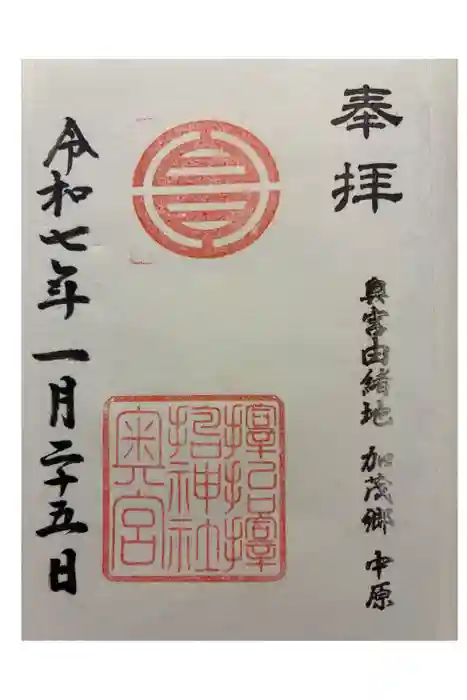 奉拝
奥宮由緒地 加茂郷 中原
神社
奥宮
令和七年 一月二十五日